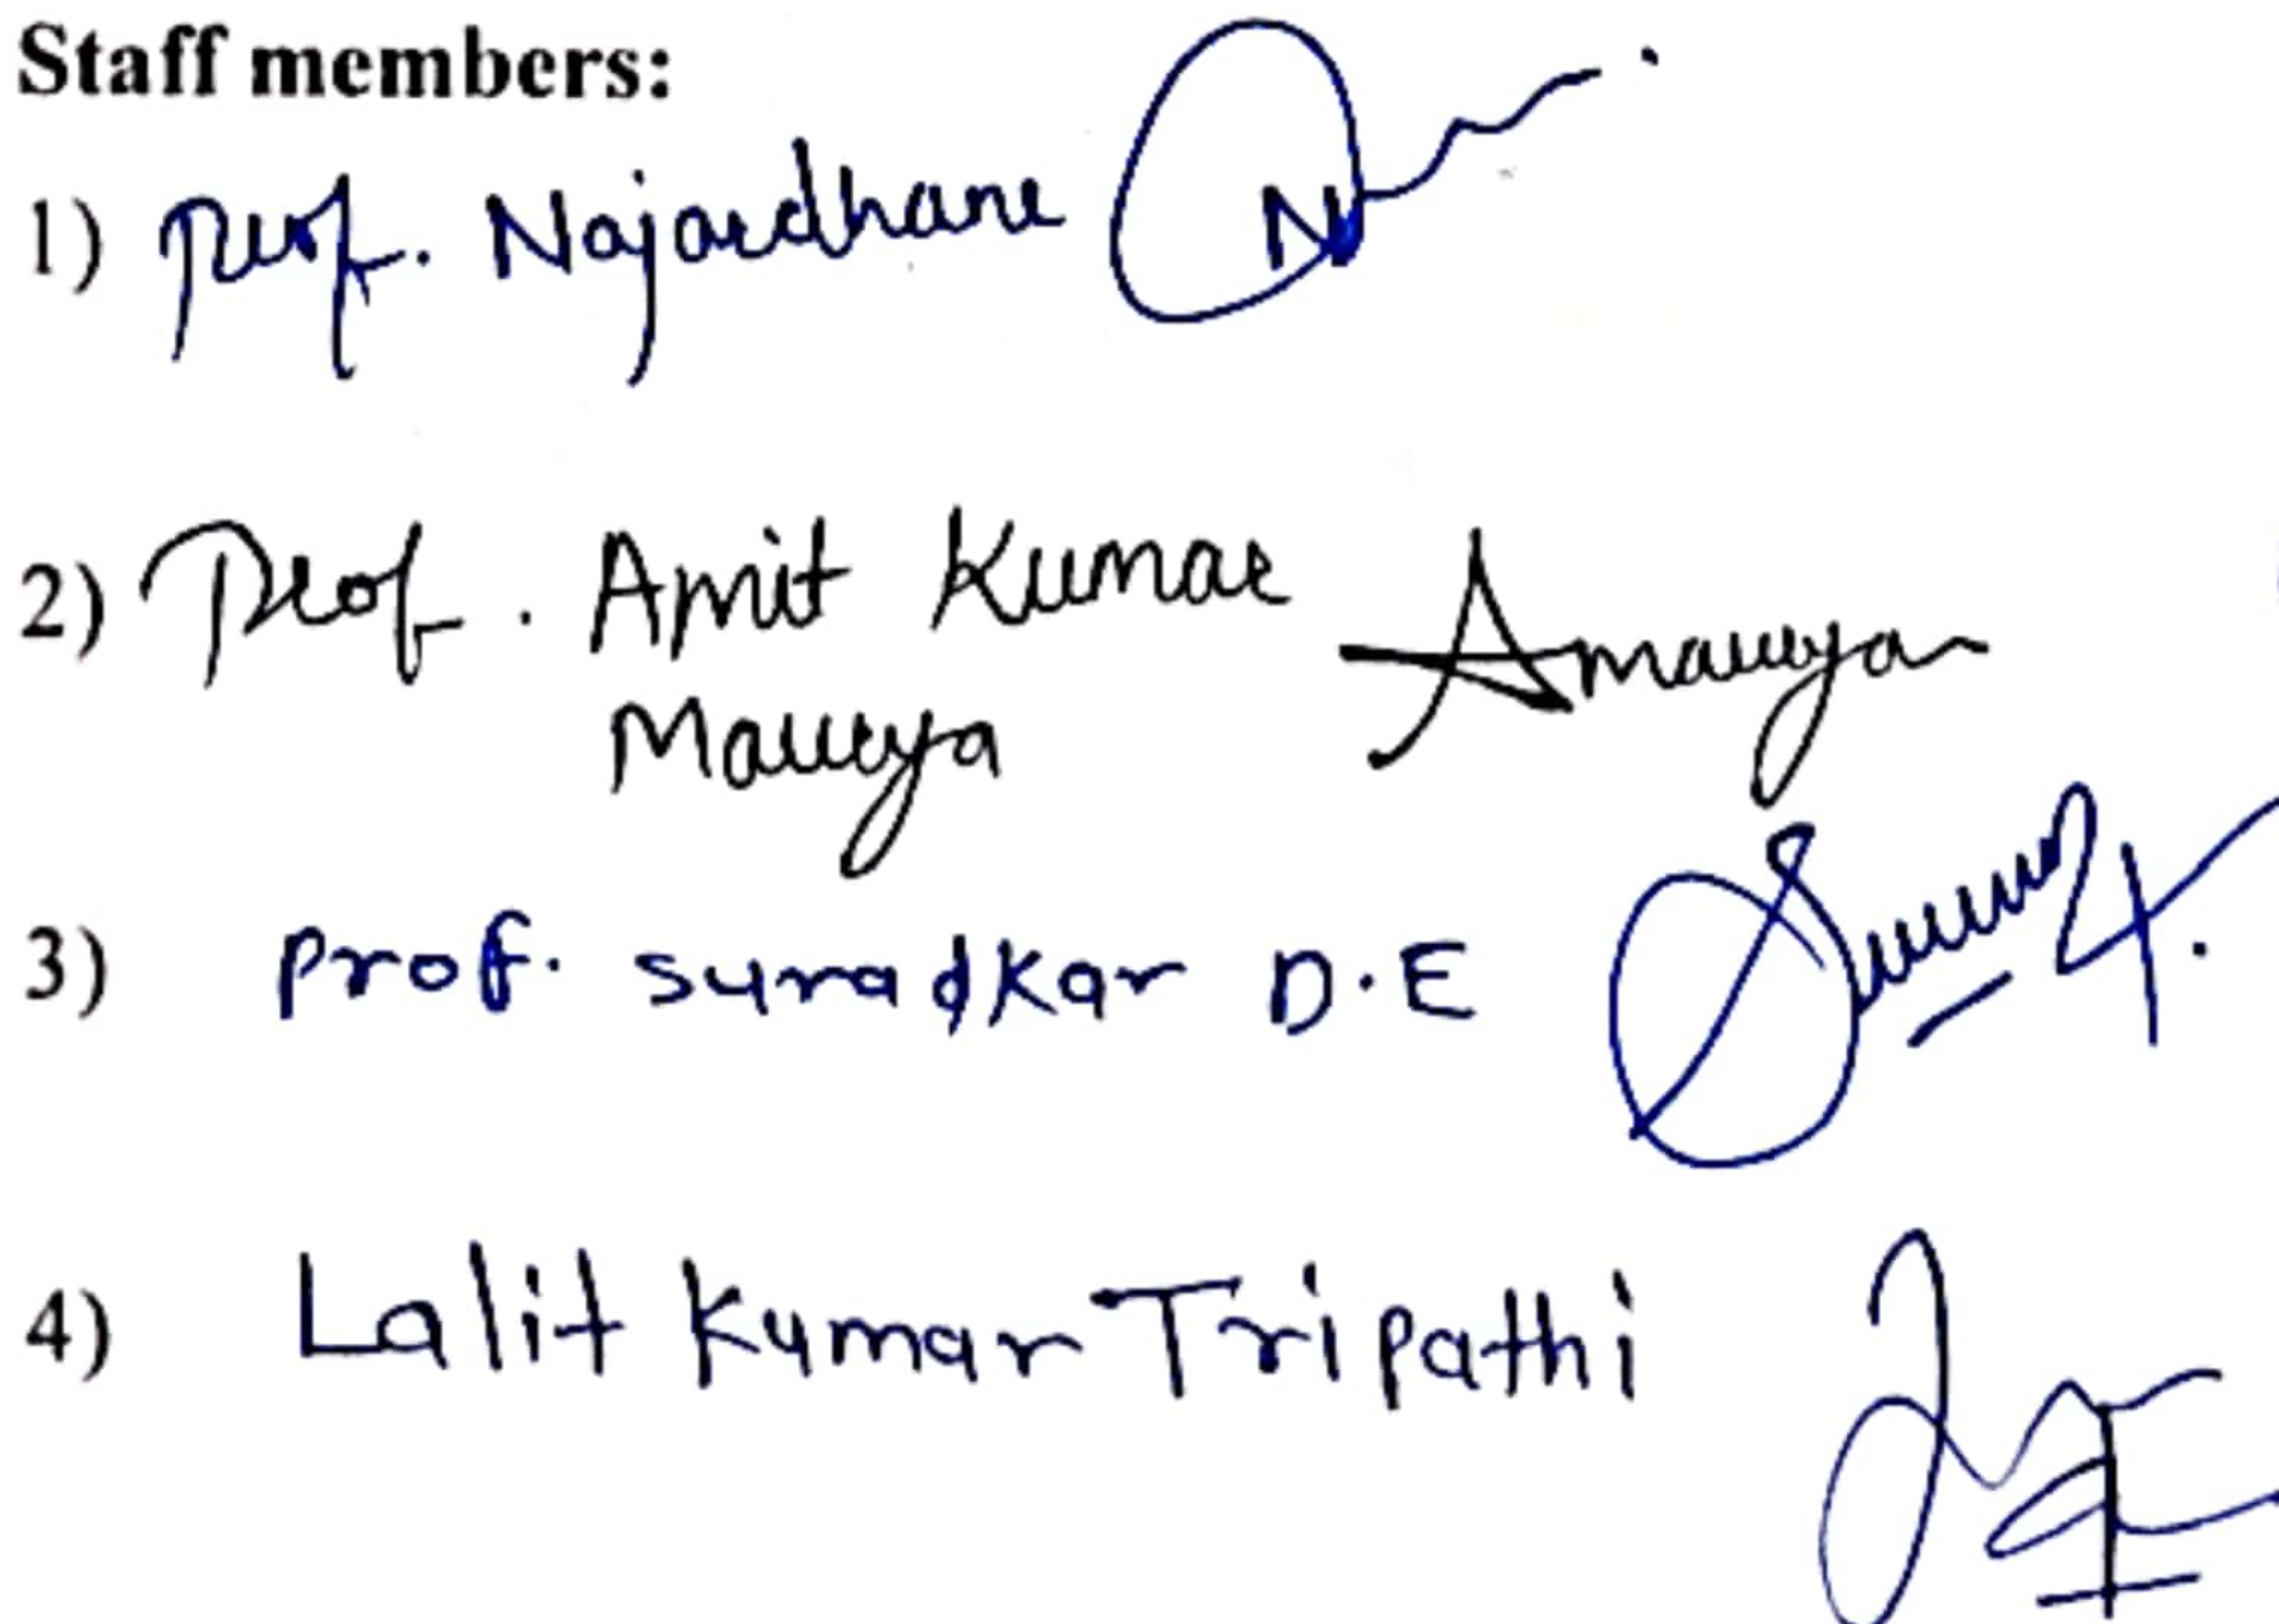 Staff members:
1) Prof. Najardhane
2) Prof. Amit Kumar Amaurya
Maurya
3) Prof. suradkar D.E
4) Lalit Kumar Tripathi